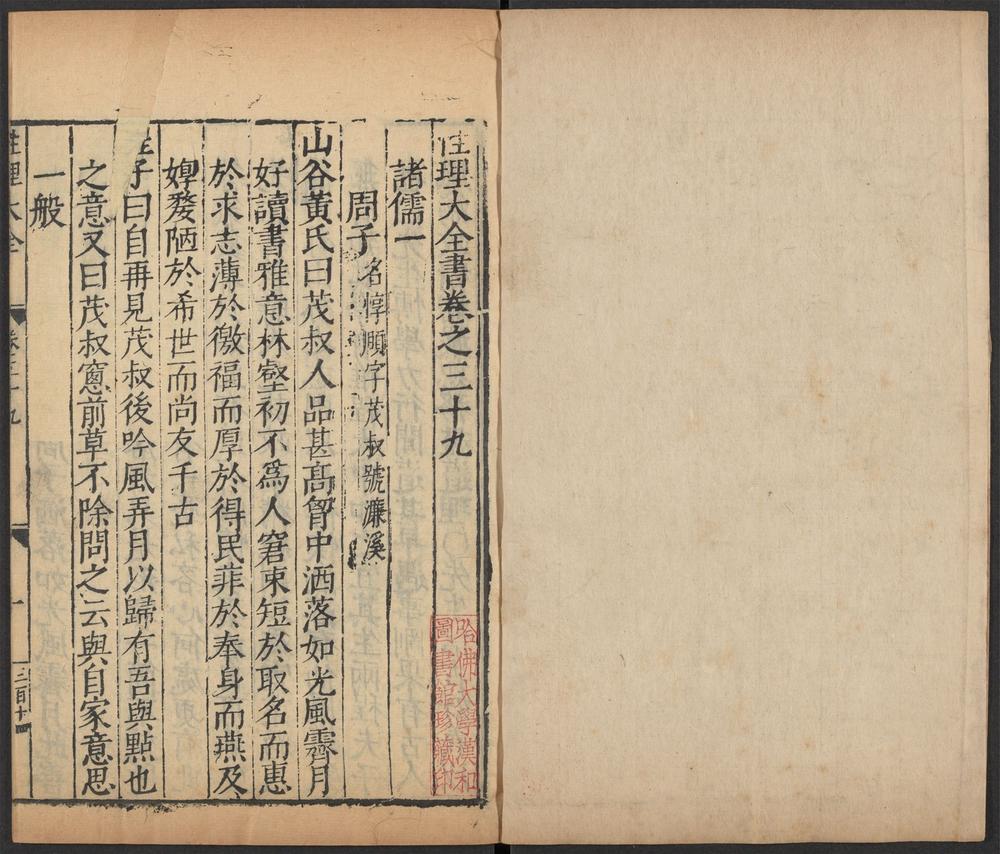 性理大全書卷之三十九
諸儒一
周子名惇頥字茂叔號濂溪
山谷黃氏曰茂叔人品甚髙胷中洒落如光風霽月
好讀書雅意林壑初不爲人窘束短於取名而惠
於求志薄於徼福而厚於得民菲於奉身而燕及
㷀嫠陋於希世而尚友千古
程子曰自再見茂叔後吟風弄月以歸有吾與點也
之意又曰茂叔窻前草不除問之云與自家意思
一般
性理大全
卷三十九
一
三百十四
哈佛大學漢和
圖書館珍藏印